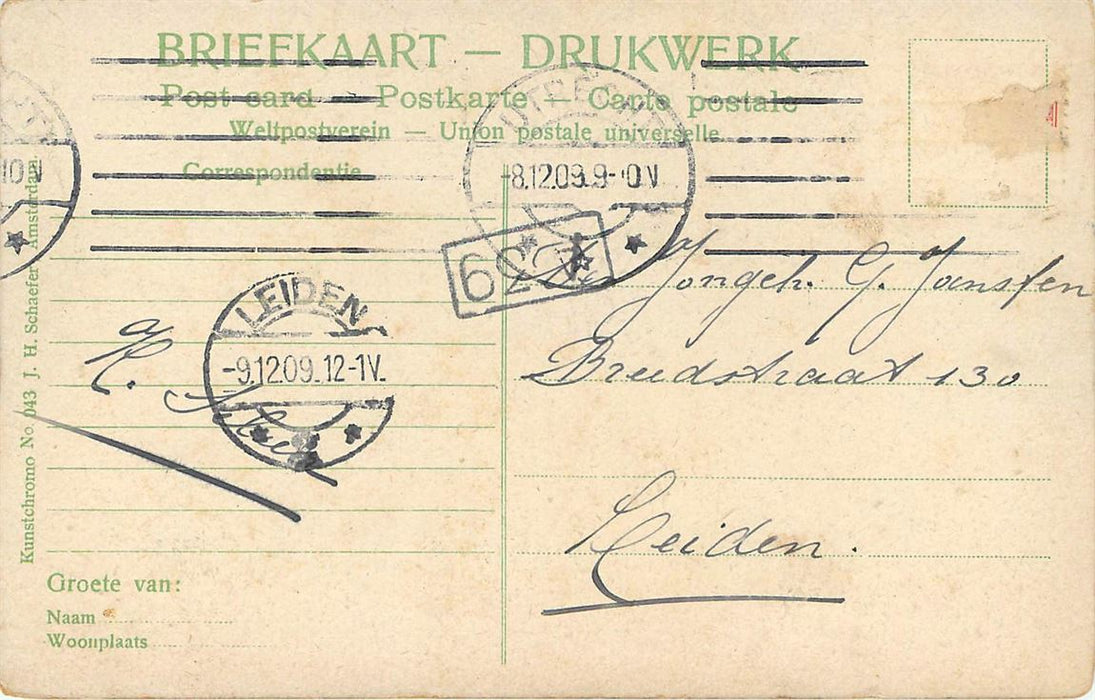 BRIEFKAART — DRUKWERK
Post card — Postkarte — Carte postale
Weltpostverein — Union postale universelle.
Correspondentie
UTRECHT
-8.12.09.9-10V
10V
LEIDEN
-9.12.09.12-1V.
De Jongeh. G. Jansfen
Breedstraat 130
Leiden.
H.
Groete van:
Naam
Woonplaats
Kunstchromo No. 043 J. H. Schaefer Amsterdam.